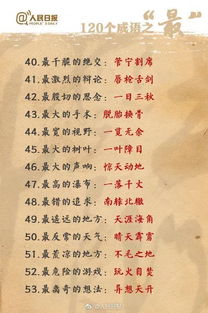 @人民日报
PEOPLE'S DAILY
120个成语之“最”
40.最干脆的绝交：管宁割席
41.最激烈的辩论：唇枪舌剑
42.最殷切的思念：一日三秋
43.最大的手术：脱胎换骨
44.最宽的视野：一览无余
45.最大的树叶：一叶障目
46.最大的声响：惊天动地
47.最高的瀑布：一落千丈
48.最错的追求：南辕北辙
49.最遥远的地方：天涯海角
50.最反常的天气：晴天霹雳
51.最荒凉的地方：不毛之地
52.最危险的游戏：玩火自焚
53.最离奇的想法：异想天开
@人民日报